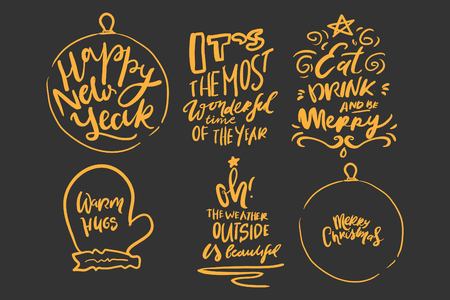 Happy
New
Year
IT'S
THE MOST
wonderful
time
OF THE YEAR
Eat
DRINK
AND BE
Merry
WARM
HUGS
oh!
THE WEATHER
OUTSIDE
is beautiful
Merry
Christmas